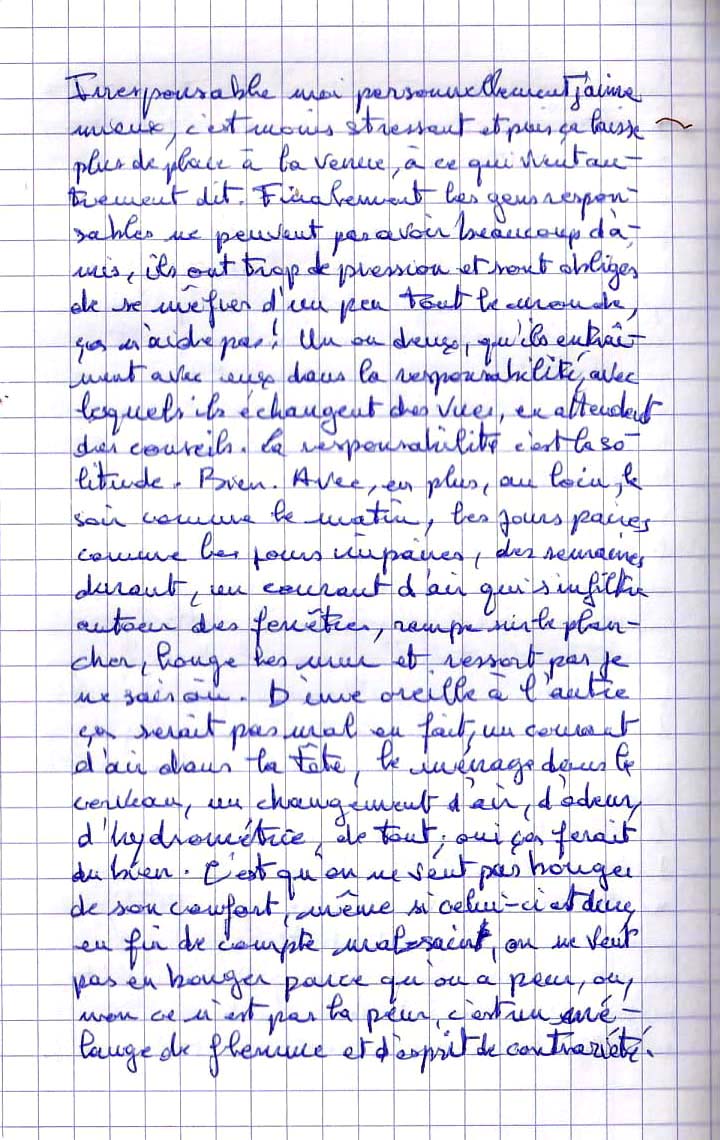 Irresponsable moi personnellement j'aime
mieux, c'est moins stressant et puis ça laisse
plus de place à la venue, à ce qui vient au-
trement dit. Finalement les gens respon-
sables ne peuvent pas avoir beaucoup d'a-
mis, ils ont trop de pression et sont obligés
de se méfier d'un peu tout le monde,
ça n'aide pas! Un ou deux, qu'ils entraî-
nent avec eux dans la responsabilité, avec
lesquels ils échangent des vues, en attendent
des conseils. La responsabilité c'est la so-
litude. Bien. Avec, en plus, au loin, le
soir comme le matin, les jours paires
comme les jours impaires, des semaines
durant, un courant d'air qui s'infiltre
autour des fenêtres, rampe sur le plan-
cher, longe les murs et ressort par je
ne sais où. D'une oreille à l'autre
ça serait pas mal en fait, un courant
d'air dans la tête, le ménage dans le
cerveau, un changement d'air, d'odeur,
d'hydrométrie, de tout, oui ça ferait
du bien. C'est qu'on ne veut pas bouger
de son confort, même si celui-ci est
en fin de compte mal-saint, on ne veut
pas en bouger parce qu'on a peur, ou,
non ce n'est pas la peur, c'est un mé-
lange de flemme et d'esprit de contrariété.